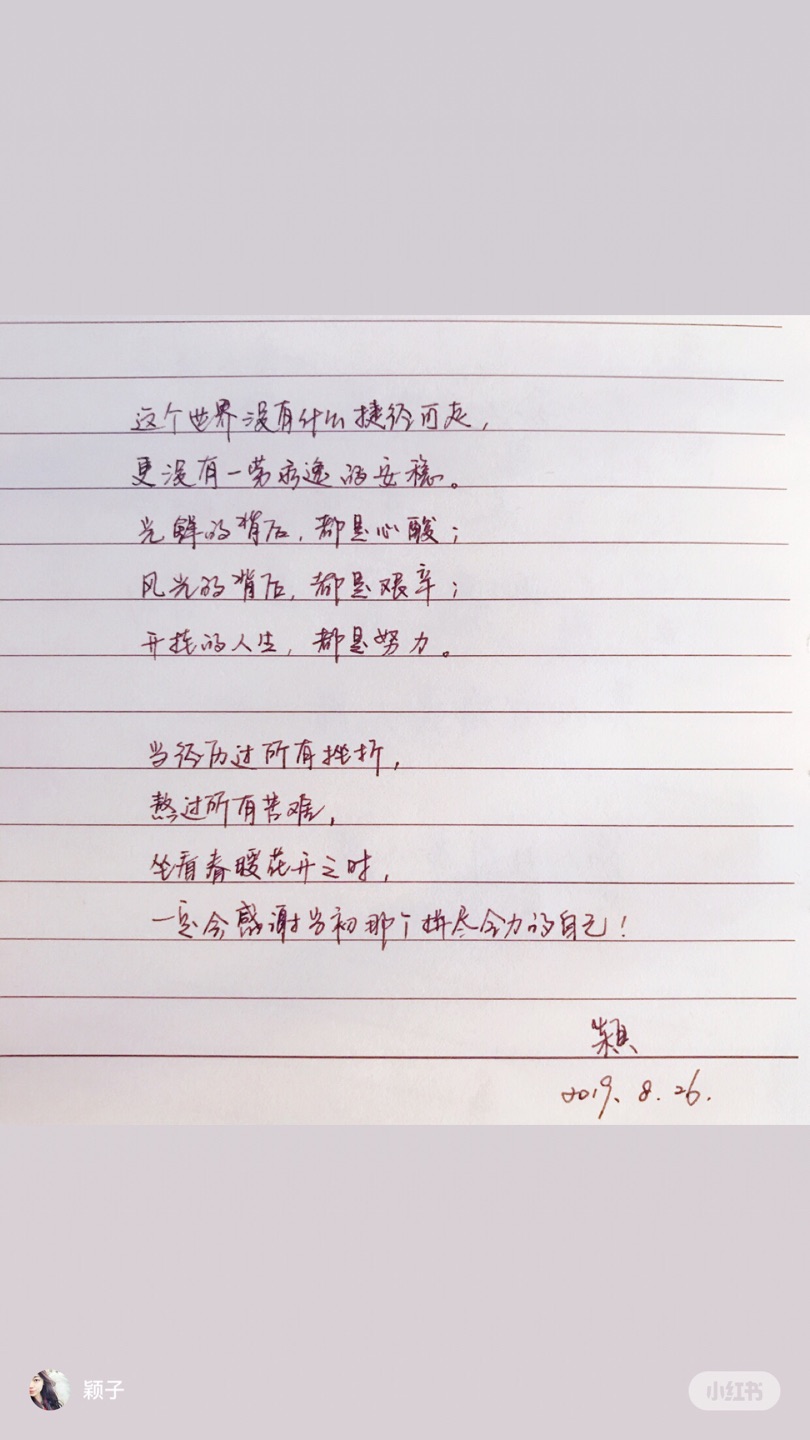 这个世界没有什么捷径可走，
更没有一劳永逸的安稳。
光鲜的背后，都是心酸；
风光的背后，都是艰辛；
开挂的人生，都是努力。
当经历过所有挫折，
熬过所有苦难，
坐看春暖花开之时，
一定会感谢当初那个拼尽全力的自己！
颖
2019.8.26.
颖子
小红书